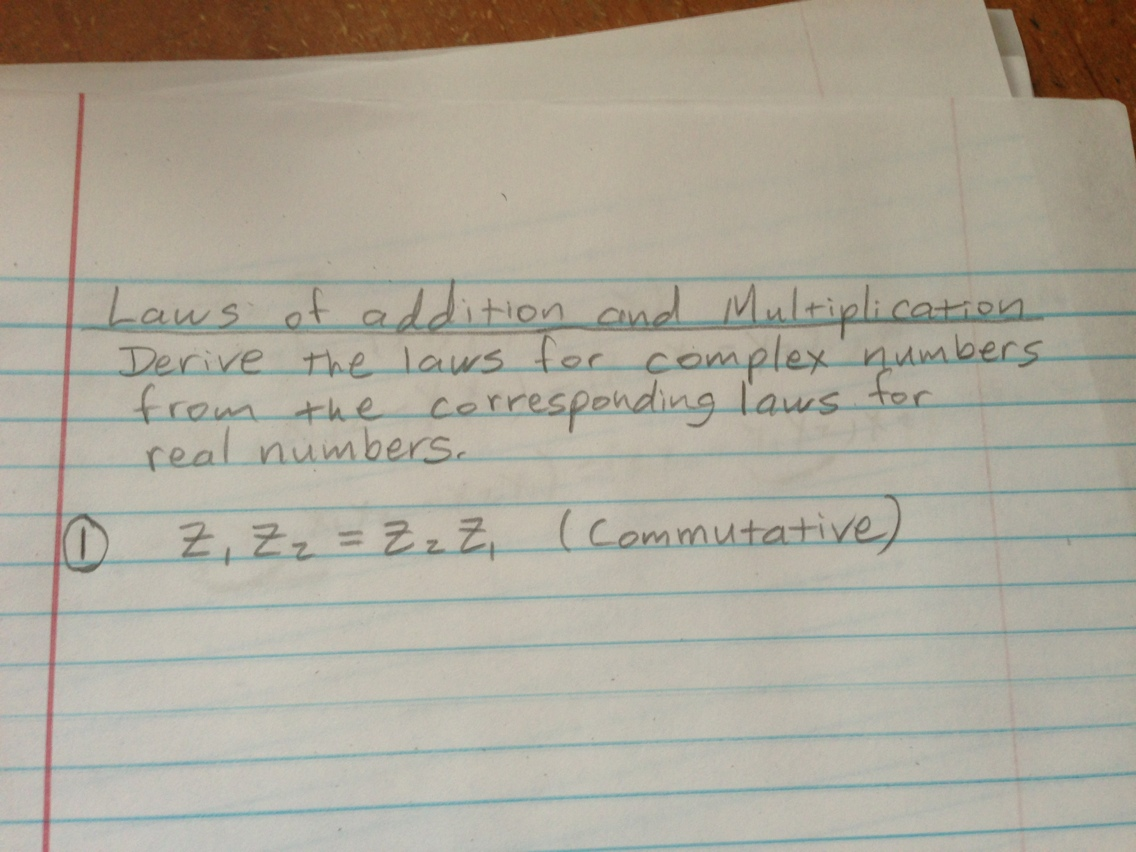 Laws of addition and Multiplication
Derive the laws for complex numbers
from the corresponding laws for
real numbers.
① Z₁ Z₂ = Z₂ Z₁ (Commutative)